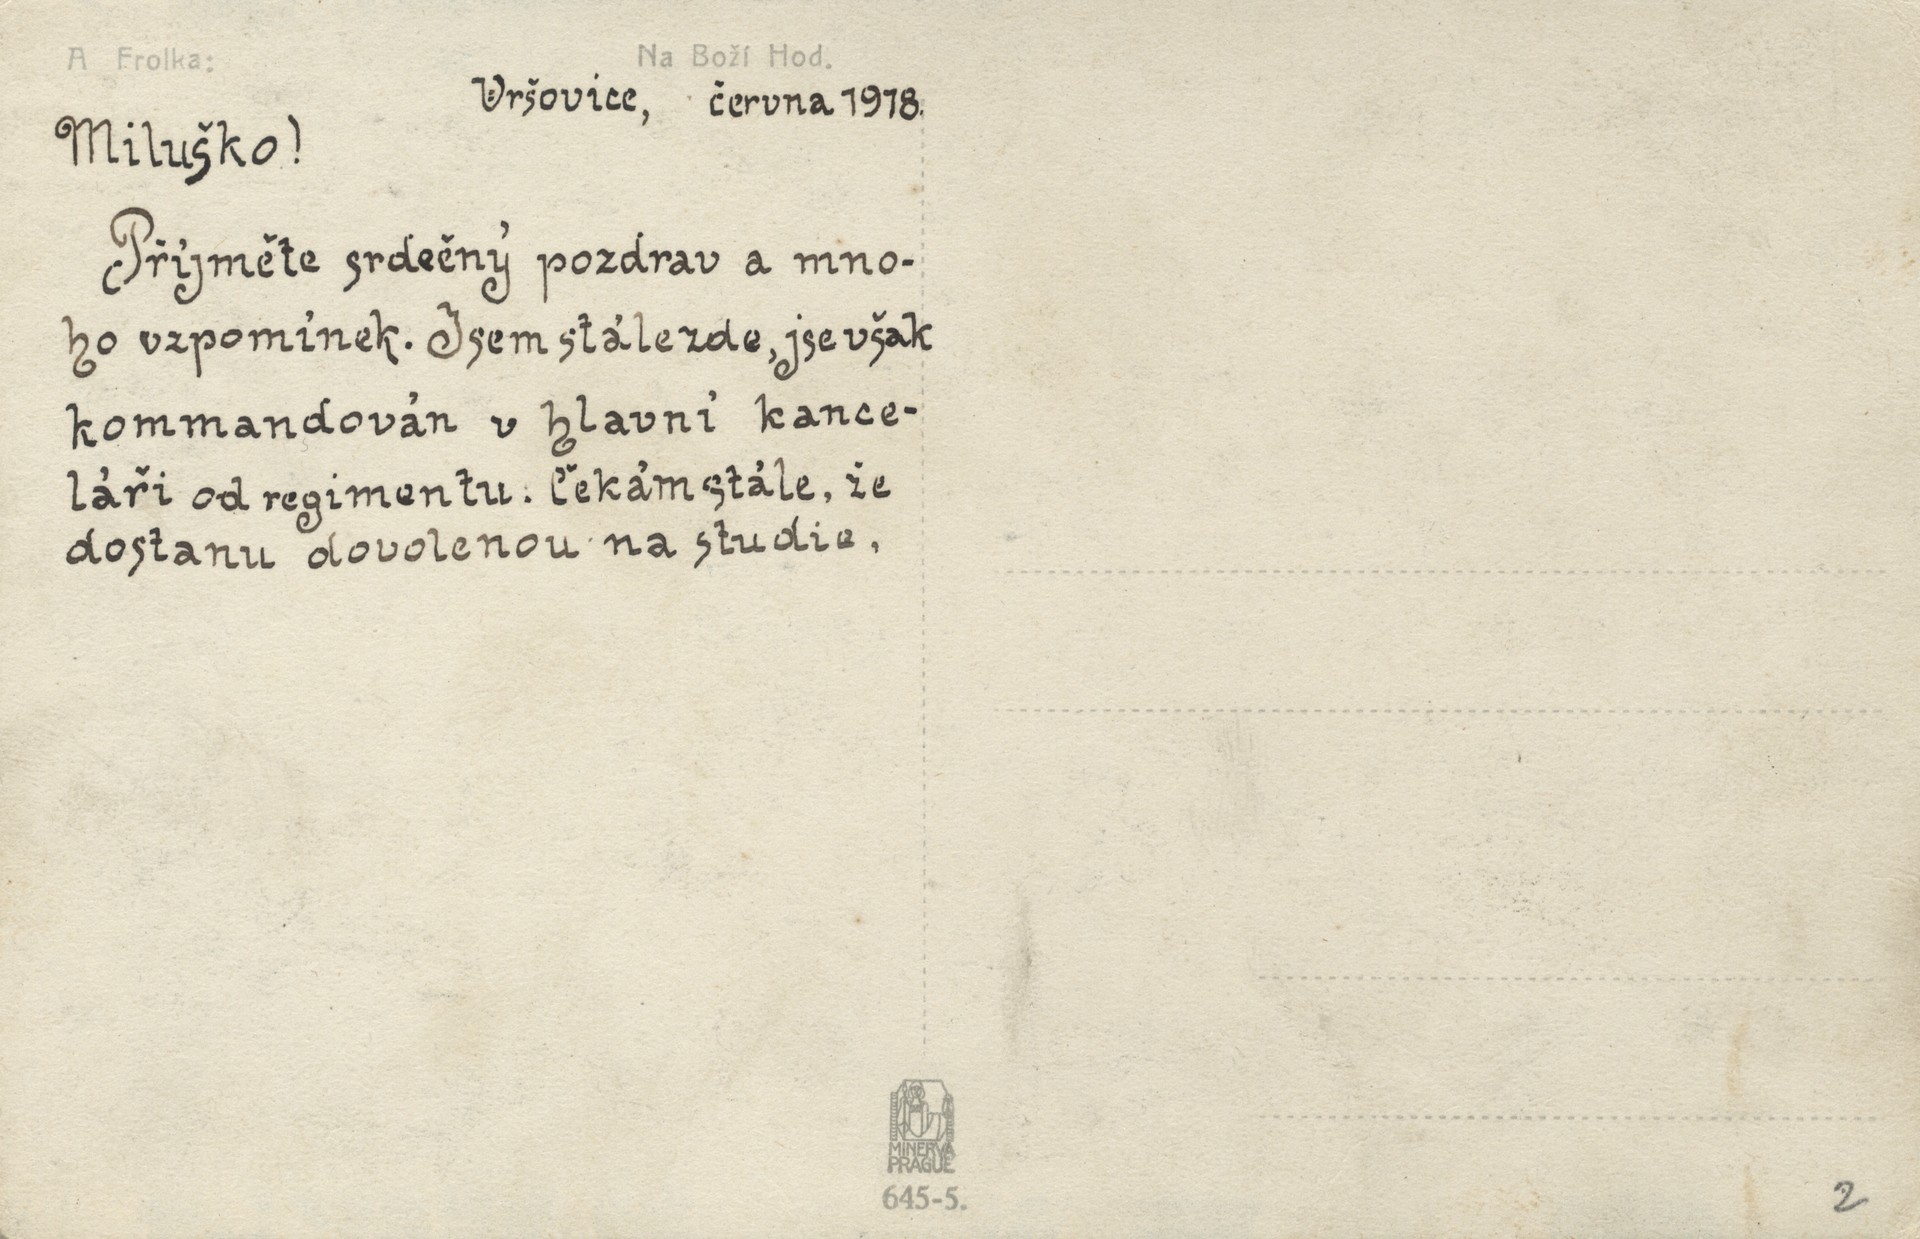 A Frolka:
Na Boží Hod.
Vršovice, června 1918.
Miluško!
Příjměte srdečný pozdrav a mno-
ho vzpomínek. Jsem stále zde, jse však
kommandován v hlavní kance-
láři od regimentu. Čekám stále, že
dostanu dovolenou na studie,
MINERVA
PRAGUE
645-5.
2